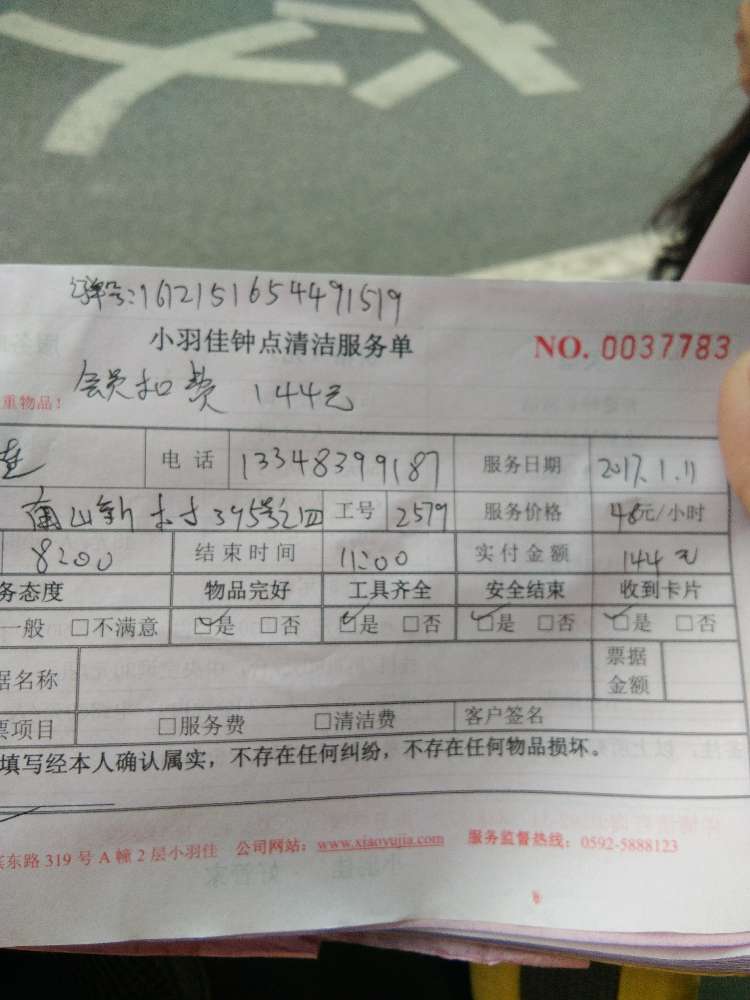 单号:1612151654491519
小羽佳钟点清洁服务单 NO. 0037783
会员扣费 144元
重物品!
电话 13348399187 服务日期 2017.1.11
山新村395号之四 工号 2579 服务价格 48元/小时
8:00 结束时间 11:00 实付金额 144元
务态度 物品完好 工具齐全 安全结束 收到卡片
一般 □不满意 ☑是 □否 ☑是 □否 ☑是 □否 ☑是 □否
据名称 票据金额
票项目 □服务费 □清洁费 客户签名
填写经本人确认属实，不存在任何纠纷，不存在任何物品损坏。
东路 319 号 A 幢 2 层小羽佳 公司网站：www.xiaoyujia.com 服务监督热线：0592-5888123